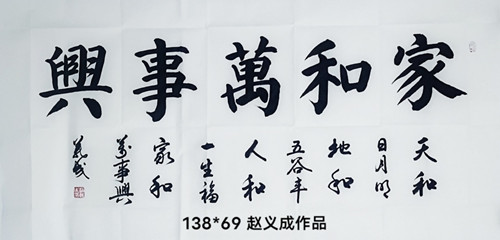 家和萬事興
天和
日月明
地和
五谷丰
人和
一生福
家和
萬事興
義成
138*69 赵义成作品